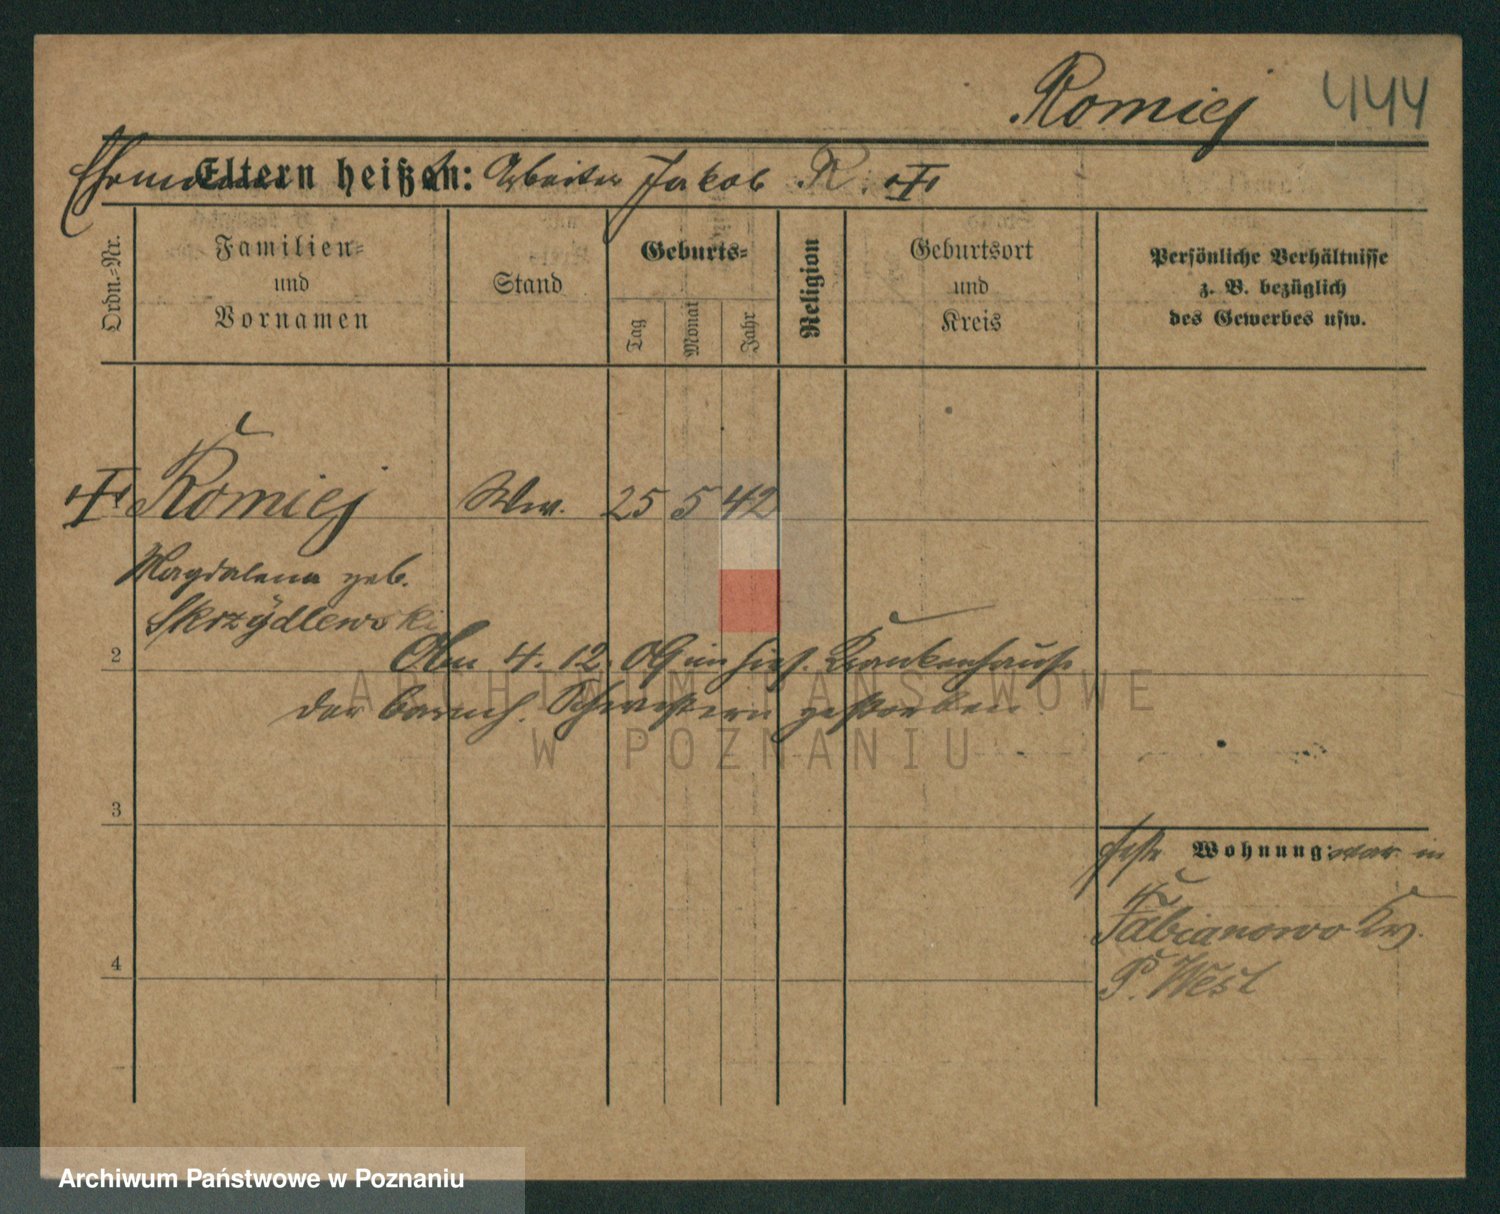 Romiej 444
Ehemann Eltern heißen: Arbeiter Jakob R. †
Ordn.-Nr.
Familien-
und
Vornamen
Stand
Geburts-
Tag
Monat
Jahr
Religion
Geburtsort
und
Kreis
Persönliche Verhältnisse
z. B. bezüglich
des Gewerbes usw.
† Romiej Ww. 25 5 42
Magdalena geb.
Skrzydlewski
2
Am 4. 12. 09 im hies. Krankenhause
der barmh. Schwestern gestorben
ARCHIWUM PAŃSTWOWE
W POZNANIU
3
Wohnung: war in
Fabianowo Kr.
P. West
4
Archiwum Państwowe w Poznaniu